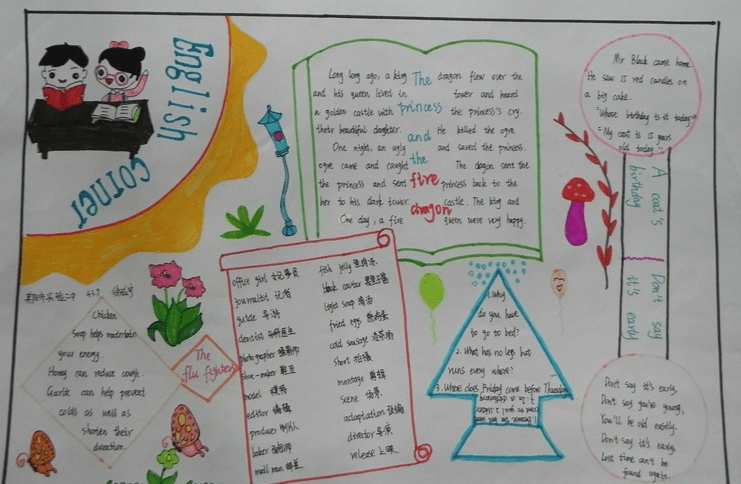 English
corner
Long long ago, a king
and his queen lived in
a golden castle with
their beautiful daughter.
One night, an ugly
ogre came and caught
the princess and sent
her to his dark tower.
One day, a fire
The
princess
and
the
fire
dragon
dragon flew over the
tower and heard
the princess's cry.
He killed the ogre
and saved the princess.
The dragon sent the
princess back to the
castle. The king and
queen were very happy.
Mr Black came home.
He saw 15 red candles on
a big cake.
"Whose birthday is it today?"
"My coat is 15 years
old today."
A coat's
birthday
Don't say
it's early
Don't say it's early,
Don't say you're young,
You'll be old easily.
Don't say it's early,
Lost time can't be
found again.
Chicken
Soup helps
your energy.
Honey can reduce cough.
Garlic can help prevent
colds as well as
shorten their
duration.
The
flu fighters
office girl
journalist 记者
guide 导游
dentist 牙科医生
photographer 摄影师
shoe-maker 鞋匠
model 模特
editor 编辑
producer 制片人
baker
mail man 邮差
fish jelly 鱼肉冻
black caviar
light soup 清汤
fried eggs 煎鸡蛋
cold sausage
short 短片
montage 剪辑
scene 场景
adaptation 改编
director 导演
release 上映
1. Why
do you have
to go to bed?
2. What has no legs but
runs every where?
3. Where does Friday come before Thursday